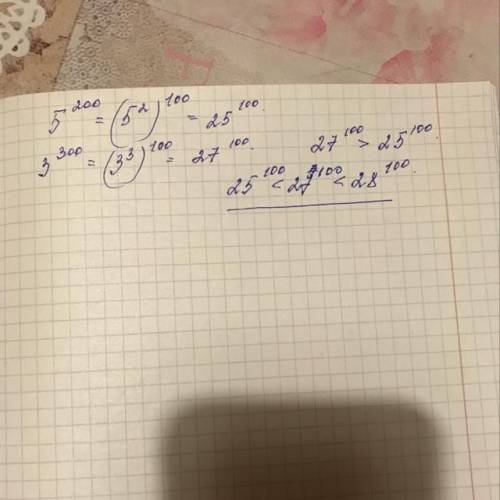 5^200 = (5^2)^100 = 25^100.
3^300 = (3^3)^100 = 27^100.
27^100 > 25^100.
25^100 < 27^100 < 28^100.